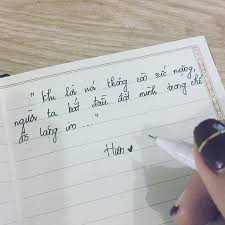 " Khi lời nói không còn sức nặng,
người ta bắt đầu đặt mình trong chế
độ lặng im ..."
Hiên ♥